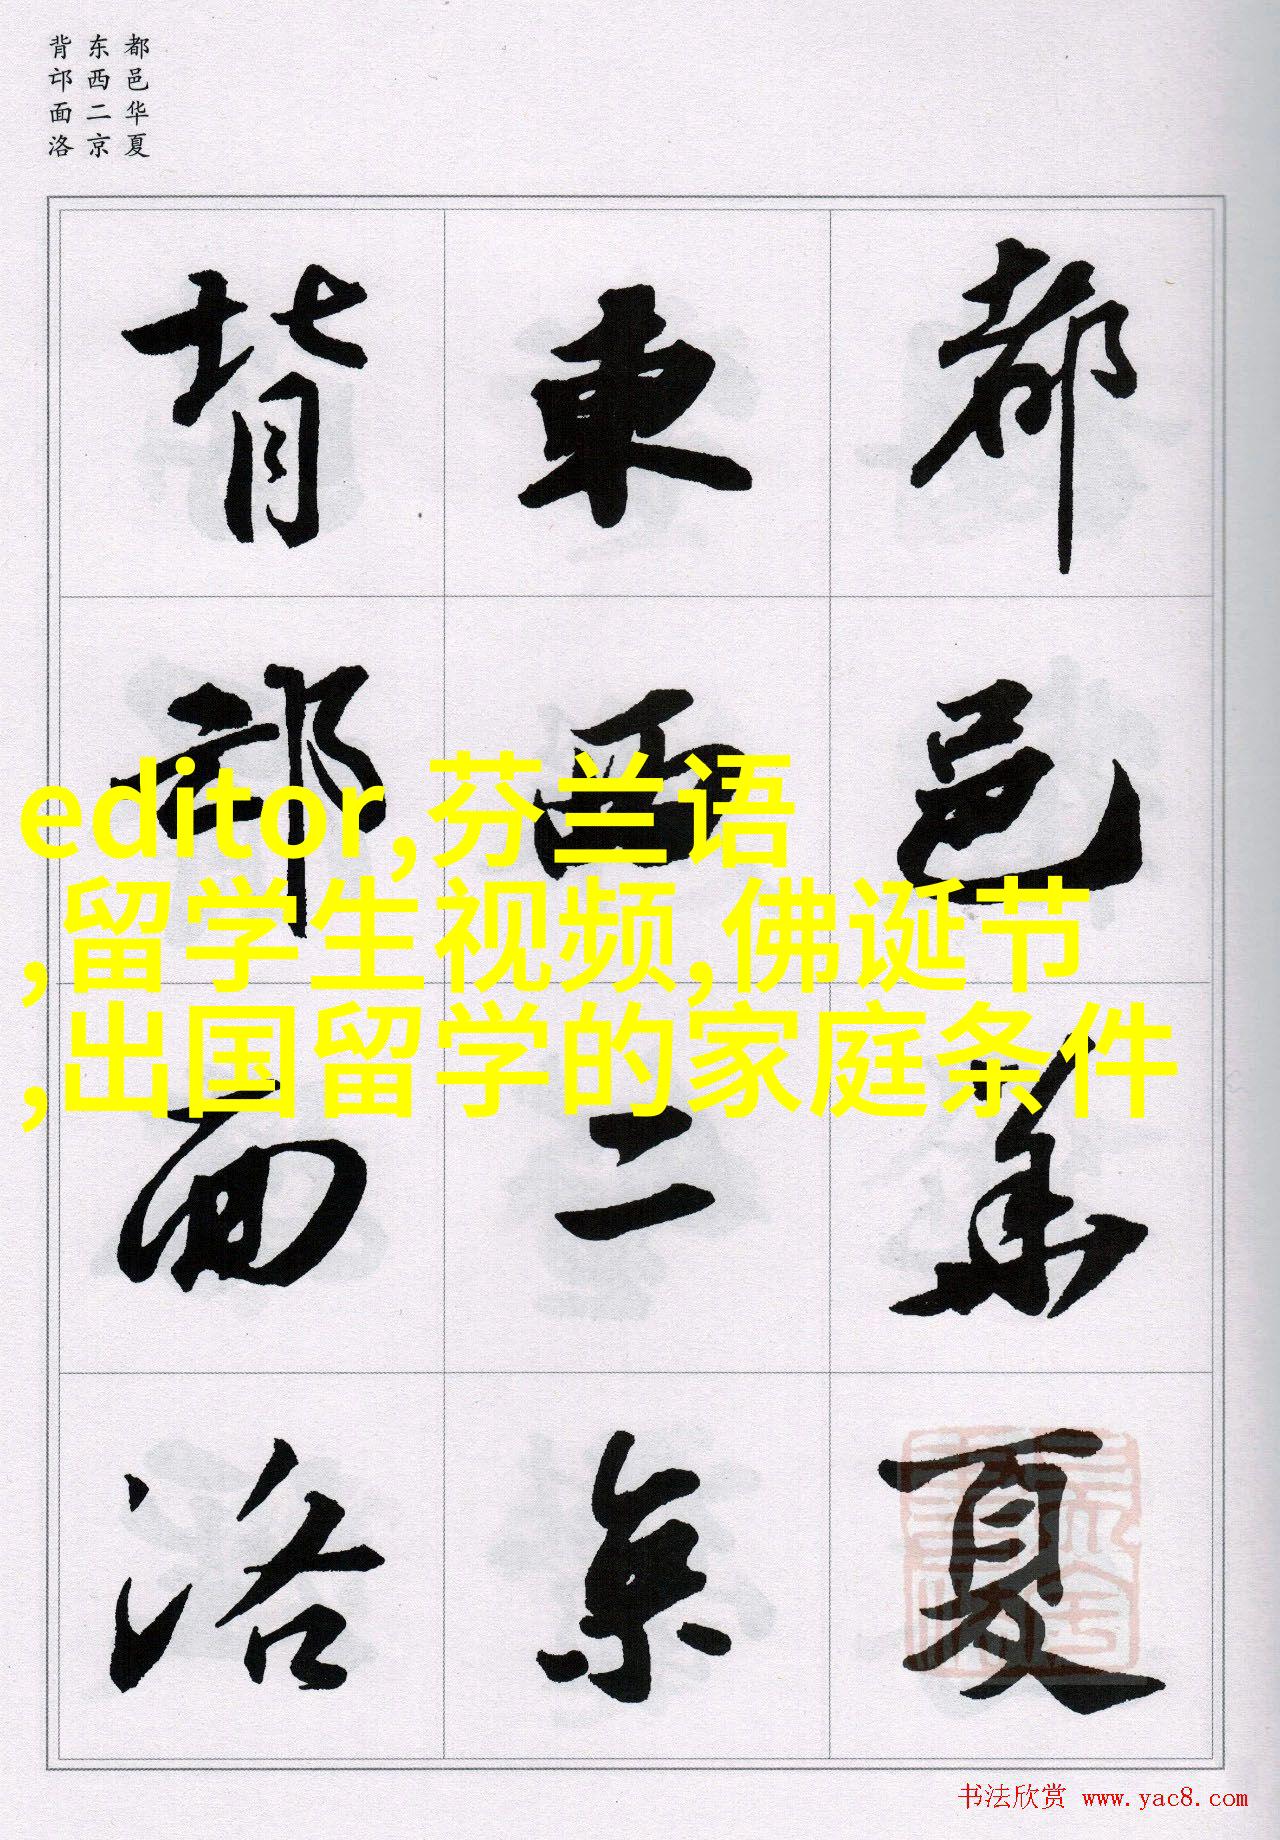 都邑华夏
东西二京
背邙面洛
都邑華夏
東西二京
背邙面洛
editor,芬兰语
,留学生视频,佛诞节
,出国留学的家庭条件
书法欣赏 www.yac8.com